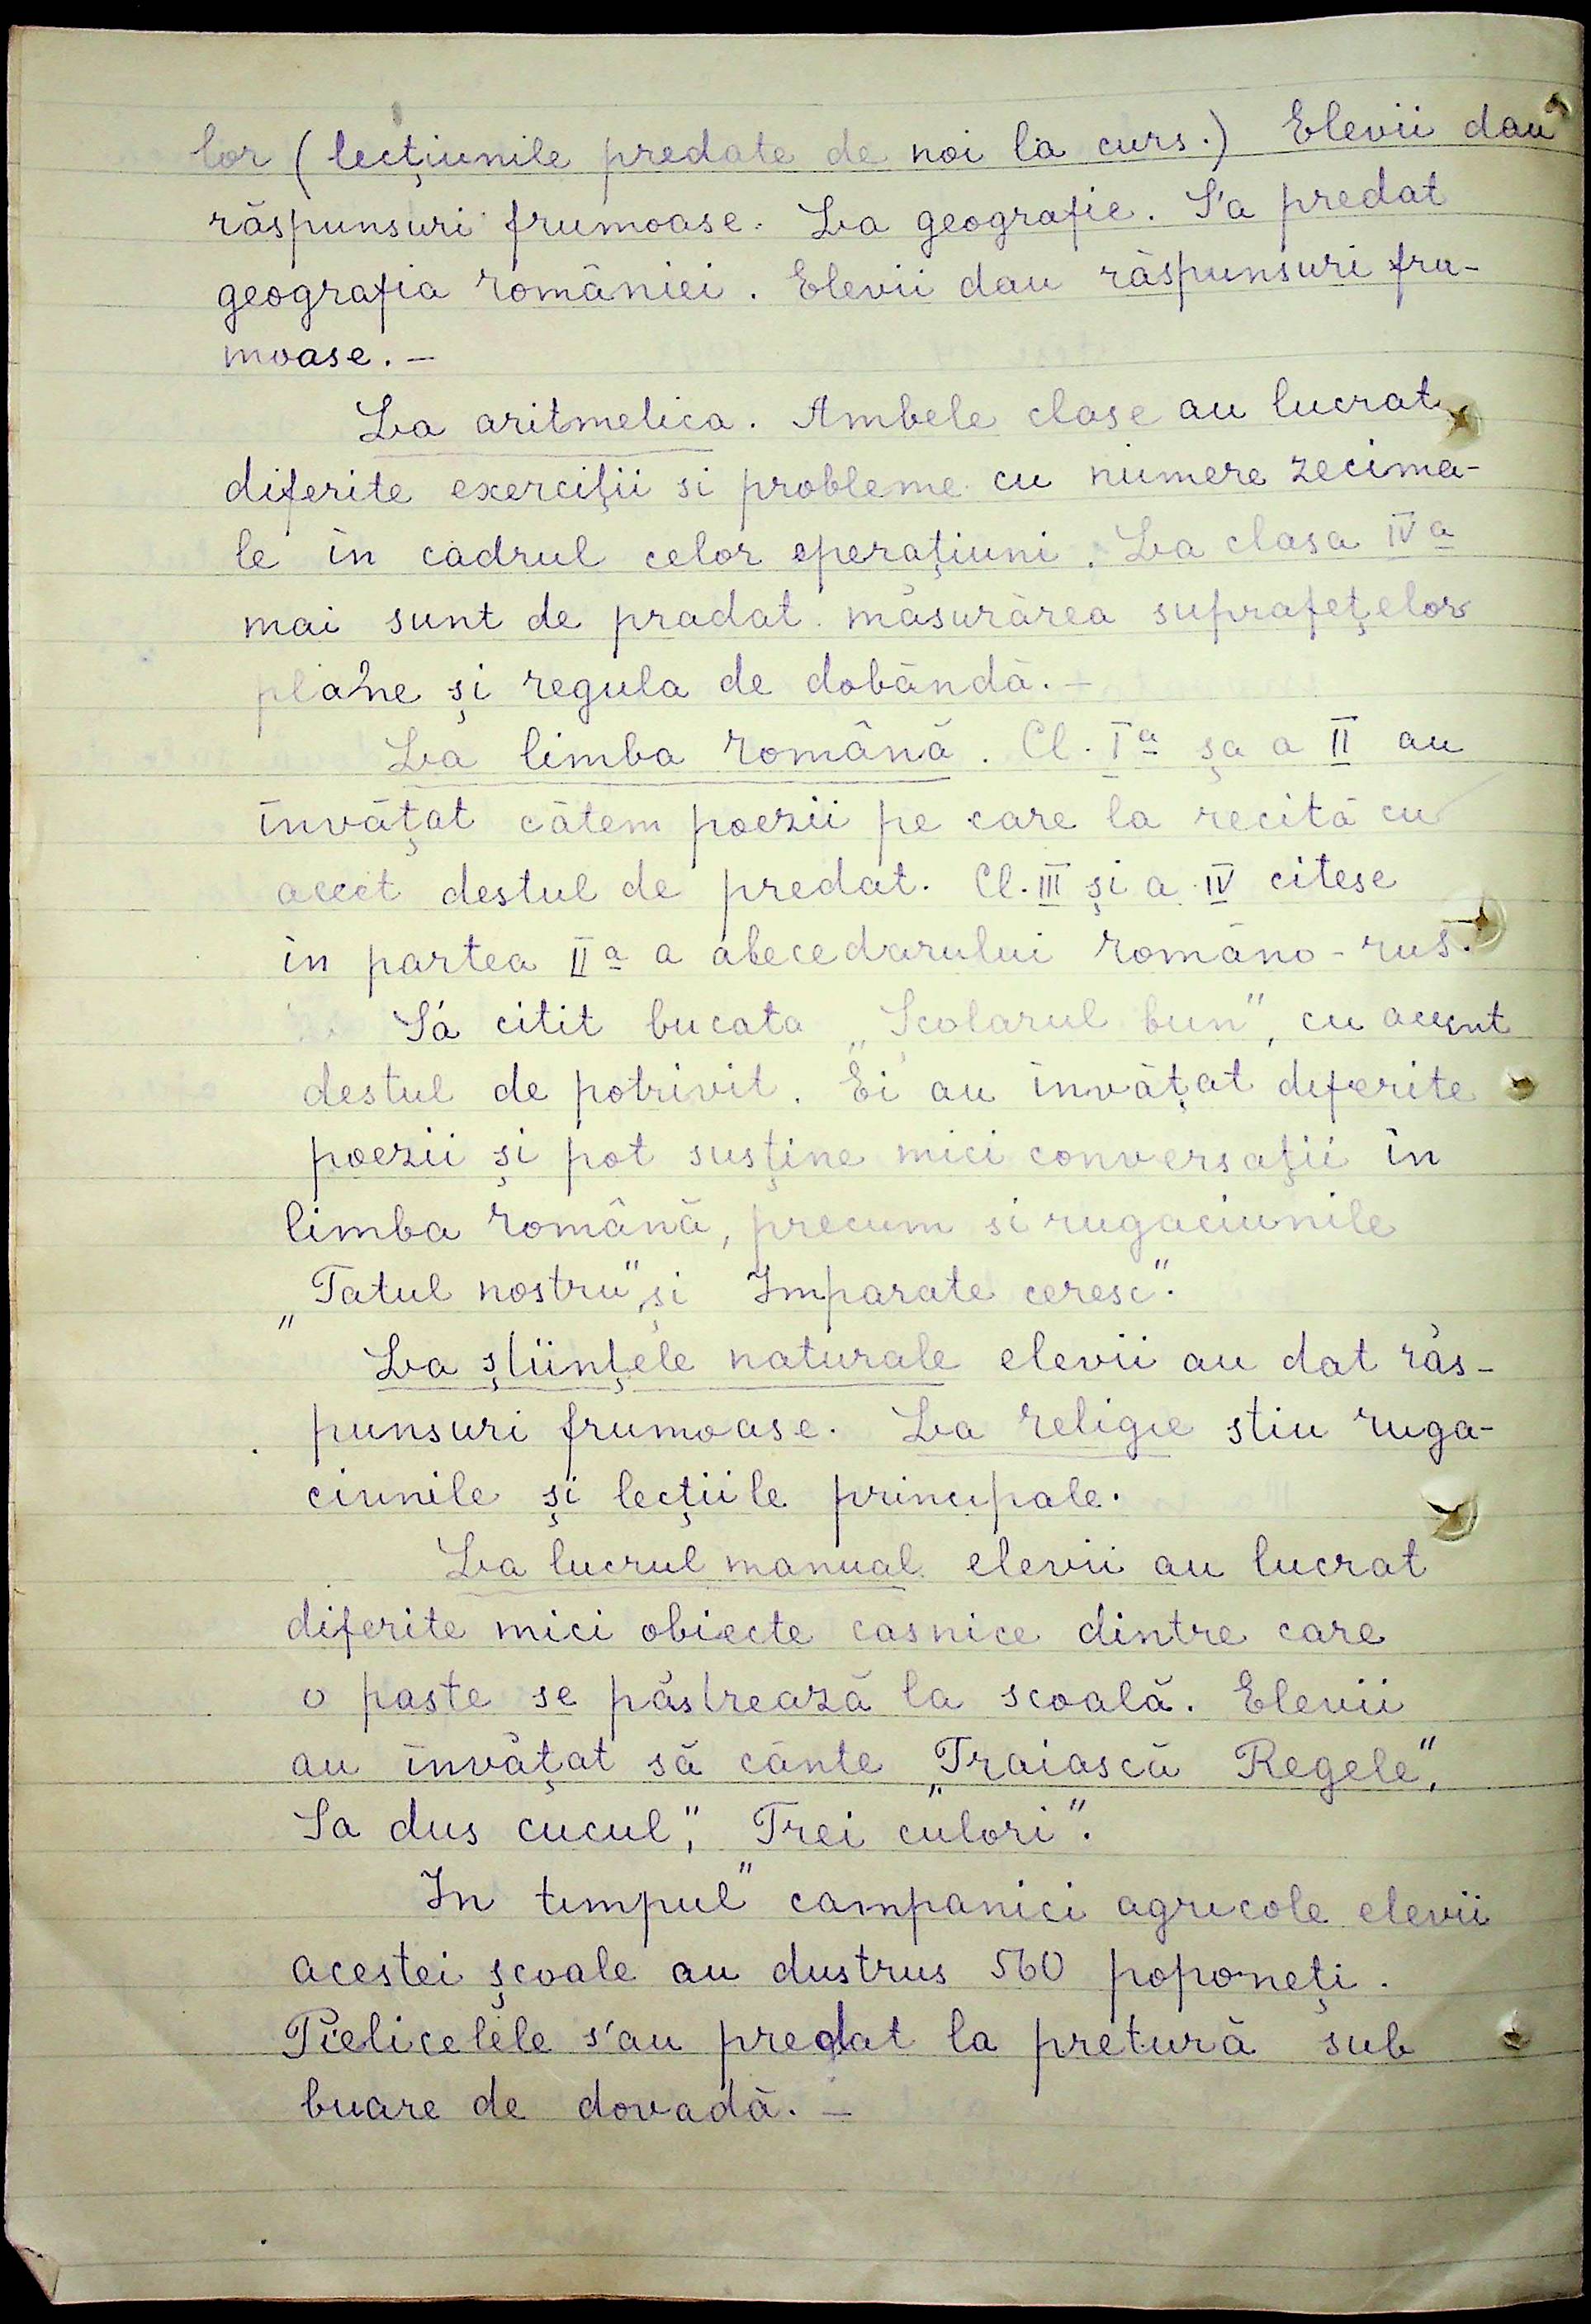 lor (lecțiunile predate de noi la curs.) Elevii dau
răspunsuri frumoase. La geografie. S'a predat
geografia româniei. Elevii dau răspunsuri fru-
moase. —
La aritmetica. Ambele clase au lucrat
diferite exerciții si probleme cu numere zecima-
le in cadrul celor operațiuni. La clasa IVa
mai sunt de pradat măsurărea suprafețelor
plane și regula de dobândă. —
La limba română. Cl. Ia șa a II au
învățat cătem poezii pe care la recită cu
acect destul de predat. Cl. III și a IV citesc
in partea IIa a abecedarului româno-rus.
S'a citit bucata „Scolarul bun", cu acent
destul de potrivit. Ei au învățat diferite
poezii și pot susține mici conversații in
limba română, precum si rugaciunile
„Tatul nostru" și Imparate ceresc".
La științele naturale elevii au dat răs-
punsuri frumoase. La religie stiu ruga-
ciunile și lecțiile principale.
La lucrul manual elevii au lucrat
diferite mici obiecte casnice dintre care
o paste se păstrează la scoală. Elevii
au învățat să cânte „Traiască Regele",
Sa dus cucul", „Trei culori".
In timpul" campaniei agricole elevii
acestei școale au dustrus 560 poponeți.
Pielicelele s'au predat la pretură sub
buare de dovadă. —